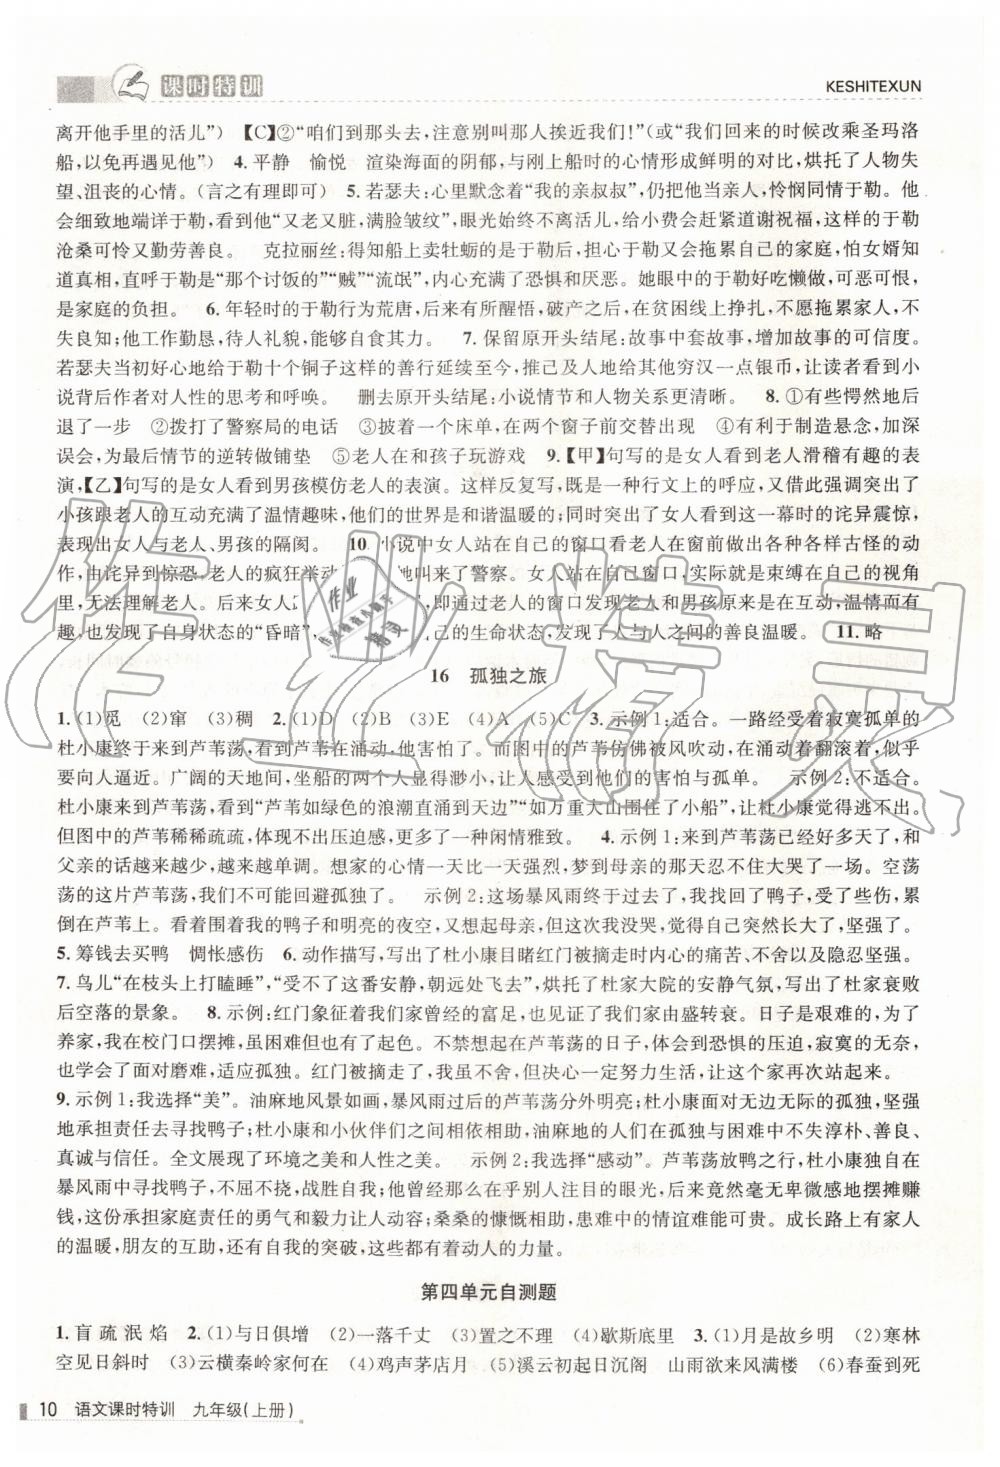 课时特训
KESHITEXUN
离开他手里的活儿”) 【C】②“咱们到那头去,注意别叫那人挨近我们!”(或“我们回来的时候改乘圣玛洛
船,以免再遇见他”) 4. 平静 愉悦 渲染海面的阴郁,与刚上船时的心情形成鲜明的对比,烘托了人物失
望、沮丧的心情。(言之有理即可) 5. 若瑟夫:心里默念着“我的亲叔叔”,仍把他当亲人,怜悯同情于勒。他
会细致地端详于勒,看到他“又老又脏,满脸皱纹”,眼光始终不离开活儿,给小费会赶紧道谢祝福,这样的于勒
沧桑可怜又勤劳善良。 克拉丽丝:得知船上卖牡蛎的是于勒后,担心于勒又会拖累自己的家庭,怕女婿知
道真相,直呼于勒是“这个讨饭的”“贼”“流氓”,内心充满了恐惧和厌恶。她眼中的于勒好吃懒做,可恶可恨,
是家庭的负担。 6. 年轻时的于勒行为荒唐,后来有所醒悟,破产之后,在贫困线上挣扎,不愿拖累家人,不
失良知;他工作勤恳,待人礼貌,能自食其力。 7. 保留原开头结尾:故事中套故事,增加故事的可信度。
若瑟夫当初好心地给于勒十个铜子这样的善行延续至今,推己及人地给其他穷汉一点银币,让读者看到小
说背后作者对人性的思考和呼唤。 删去原开头结尾:小说情节和人物关系更清晰。 8. ①有些愕然地后
退了一步 ②拨打了警察局的电话 ③披着一个床单,在两个窗子前交替出现 ④有利于制造悬念,加深
误会,为最后情节的逆转做铺垫 ⑤老人在和孩子玩游戏 9.【甲】句写的是女人看到老人滑稽有趣的表
演,【乙】句写的是女人看到男孩模仿老人的表演。这样反复写,既是一种行文上的呼应,又借此强调突出了
小孩跟老人的互动充满了温情趣味,他们的世界是和谐温暖的;同时突出了女人看到这一幕时的诧异震惊,
表现出女人与老人、男孩的隔阂。 10. 小说中女人站在自己的窗口看老人无声地做出各种各样古怪的动
作,由诧异到惊恐,老人的疯狂举动 她叫来了警察。女人站在自己窗口,实际就是束缚在自己的视角
里,无法理解老人。后来女人 ,即通过老人的窗口发现老人和男孩原来是在互动,温情而有
趣,也发现了自身状态的“昏暗” 己的生命状态,发现了人与人之间的善良温暖。 11. 略
16 孤独之旅
1. (1)觅 (2)窜 (3)稠 2. (1)D (2)B (3)E (4)A (5)C 3. 示例1:适合。一路经受着寂寞孤单的
杜小康终于来到芦苇荡,看到芦苇在涌动,他害怕了。而图中的芦苇仿佛被风吹动,在涌动着翻滚着,似乎
要向人逼近。广阔的天地间,坐船的两个人显得渺小,让人感受到他们的害怕与孤单。 示例2:不适合。
杜小康来到芦苇荡,看到“芦苇如绿色的浪潮直涌到天边”“如万重大山围住了小船”,让杜小康觉得逃不出。
但图中的芦苇稀稀疏疏,体现不出压迫感,更多了一种闲情雅致。 4. 示例1:来到芦苇荡已经好多天了,和
父亲的话越来越少,越来越单调。想家的心情一天比一天强烈,梦到母亲的那天忍不住大哭了一场。空荡
荡的这片芦苇荡,我们不可能回避孤独了。 示例2:这场暴风雨终于过去了,我找回了鸭子,受了些伤,累
倒在芦苇上。看着围着我的鸭子和明亮的夜空,又想起母亲,但这次我没哭,觉得自己突然长大了,坚强了。
5. 筹钱去买鸭 惆怅感伤 6. 动作描写,写出了杜小康目睹红门被摘走时内心的痛苦、不舍以及坚强。
7. 鸟儿“在枝头上打瞌睡”,“受不了这番安静,朝远处飞去”,烘托了杜家大院的安静气氛,写出了杜家衰败
后空落的景象。 8. 示例:红门象征着我们家曾经的富足,也见证了我们家由盛转衰。日子是艰难的,为了
养家,我在校门口摆摊,虽困难但有成长的气息。不禁想起在芦苇荡的生活,体会到恐惧的压迫,寂寞的无奈,
也学会了面对磨难,适应孤独。红门被摘走了,但我决心一定努力生活,让我们这个家再次站起来。
9. 示例1:我选择“美”。油麻地风景如画,暴风雨过后的芦苇荡分外明亮;杜小康面对无边无际的孤独,坚强
地承担责任去寻找鸭子;杜小康和小伙伴们之间相依相助,油麻地的人们在孤独与困难中不失淳朴、善良、
真诚与信任。全文展现了环境之美和人性之美。 示例2:我选择“感动”。芦苇荡放鸭之行,杜小康独自在
暴风雨中寻找鸭子,不惧孤独,战胜自我;他曾经那么在乎别人注目的眼光,后来竟毫无卑微感地摆摊赚
钱,这份承担家庭责任的勇气和毅力让人动容;桑桑的慷慨相助,患难中的情谊难能可贵。成长路上有家人
的温暖,朋友的互助,还有自我的突破,这些都有着动人的力量。
第四单元自测题
1. 盲 疏 泯 焰 2. (1)与日俱增 (2)一落千丈 (3)置之不理 (4)歇斯底里 3. (1)月是故乡明 (2)寒林
空见日斜时 (3)云横秦岭家何在 (4)鸡声茅店月 (5)溪云初起日沉阁 山雨欲来风满楼 (6)春蚕到死
10 语文课时特训 九年级(上册)